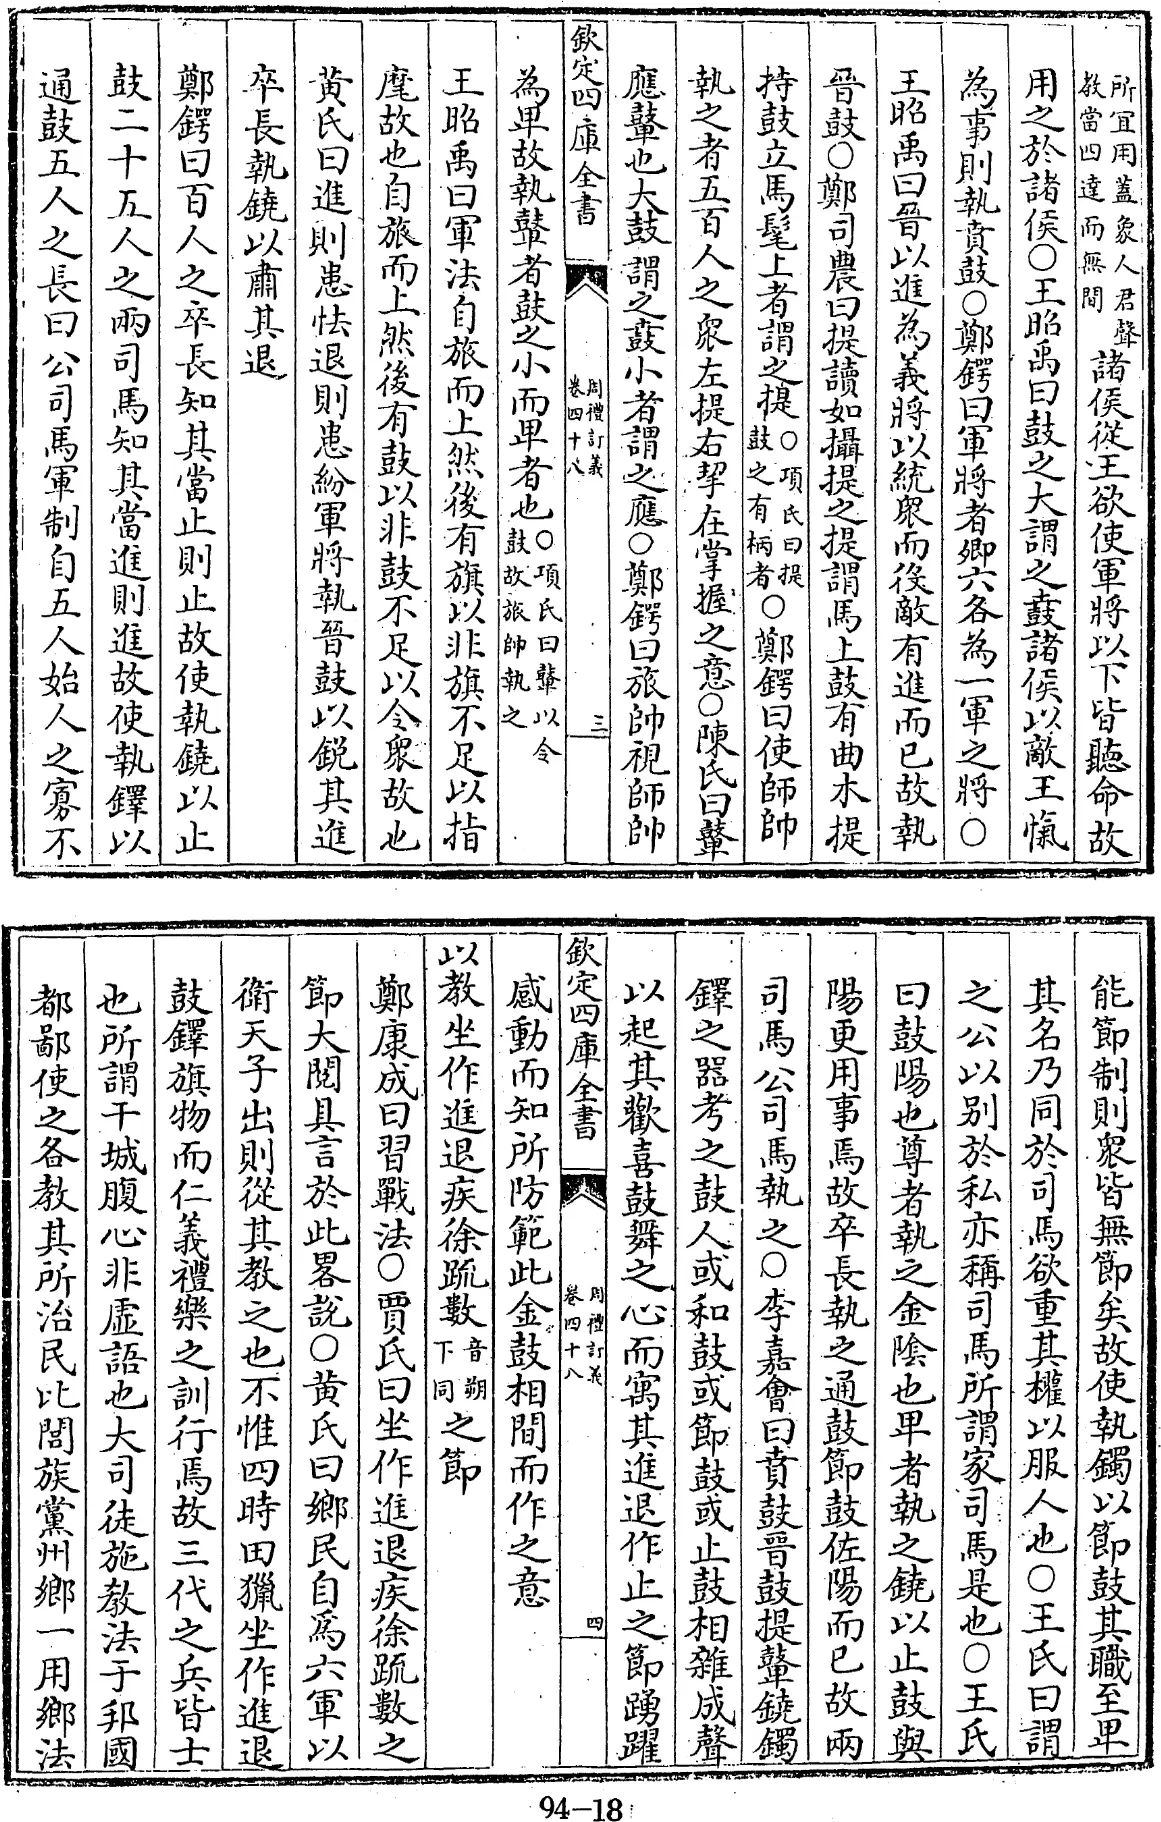 所宜用蓋象人君聲
教當四達而無間
諸侯從王欲使軍將以下皆聽命故
用之於諸侯○王昭禹曰鼓之大謂之鼖諸侯以敵王愾
為事則執賁鼓○鄭鍔曰軍將者卿六各為一軍之將○
王昭禹曰晉以進為義將以統衆而後敵有進而已故執
晉鼓○鄭司農曰提讀如攝提之提謂馬上鼓有曲木提
持鼓立馬髦上者謂之提
○項氏曰提
鼓之有柄者
○鄭鍔曰使師帥
執之者五百人之衆左提右挈在掌握之意○陳氏曰鼙
應鼙也大鼓謂之鼖小者謂之應○鄭鍔曰旅帥視師帥
欽定四庫全書
周禮訂義
卷四十八
三
為卑故執鼙者鼓之小而卑者也○
項氏曰鼙以令
鼓故旅帥執之
王昭禹曰軍法自旅而上然後有旗以非旗不足以指
麾故也自旅而上然後有鼓以非鼓不足以令衆故也
黃氏曰進則患怯退則患紛軍將執晉鼓以銳其進
卒長執鐃以肅其退
鄭鍔曰百人之卒長知其當止則止故使執鐃以止
鼓二十五人之兩司馬知其當進則進故使執鐸以
通鼓五人之長曰公司馬軍制自五人始人之寡不
能節制則衆皆無節矣故使執鐲以節鼓其職至卑
其名乃同於司馬欲重其權以服人也○王氏曰謂
之公以别於私亦稱司馬所謂家司馬是也○王氏
曰鼓陽也尊者執之金陰也卑者執之鐃以止鼓與
陽更用事焉故卒長執之通鼓節鼓佐陽而已故兩
司馬公司馬執之○李嘉會曰賁鼓晉鼓提鼙鐃鐲
鐸之器考之鼓人或和鼓或節鼓或止鼓相雜成聲
以起其歡喜鼓舞之心而寓其進退作止之節踴躍
欽定四庫全書
周禮訂義
卷四十八
四
感動而知所防範此金鼓相間而作之意
以教坐作進退疾徐疏數
音朔
下同
之節
鄭康成曰習戰法○賈氏曰坐作進退疾徐疏數之
節大閱具言於此畧說○黃氏曰鄉民自爲六軍以
衛天子出則從其教之也不惟四時田獵坐作進退
鼓鐸旗物而仁義禮樂之訓行焉故三代之兵皆士
也所謂干城腹心非虛語也大司徒施教法于邦國
都鄙使之各教其所治民比閭族黨州鄉一用鄉法
94-18